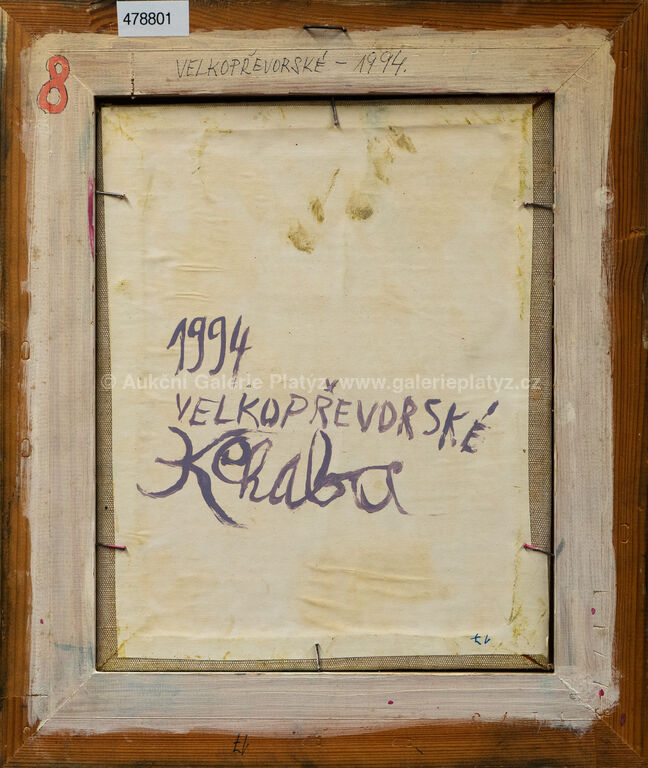 478801
8
VELKOPŘEVORSKÉ – 1994.
1994
© Aukční Galerie Platýz, www.galerieplatyz.cz
VELKOPŘEVORSKÉ